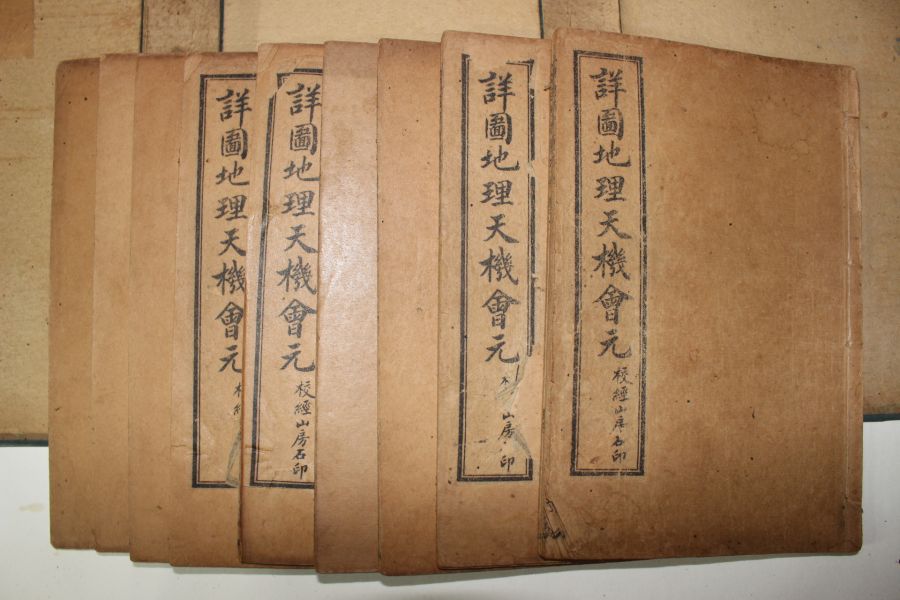 詳圖地理天機會元
校經山房石印
詳圖地理天機會元
山房 印
詳圖地理天機會元
校經山房石印
詳圖地理天機會元
校經